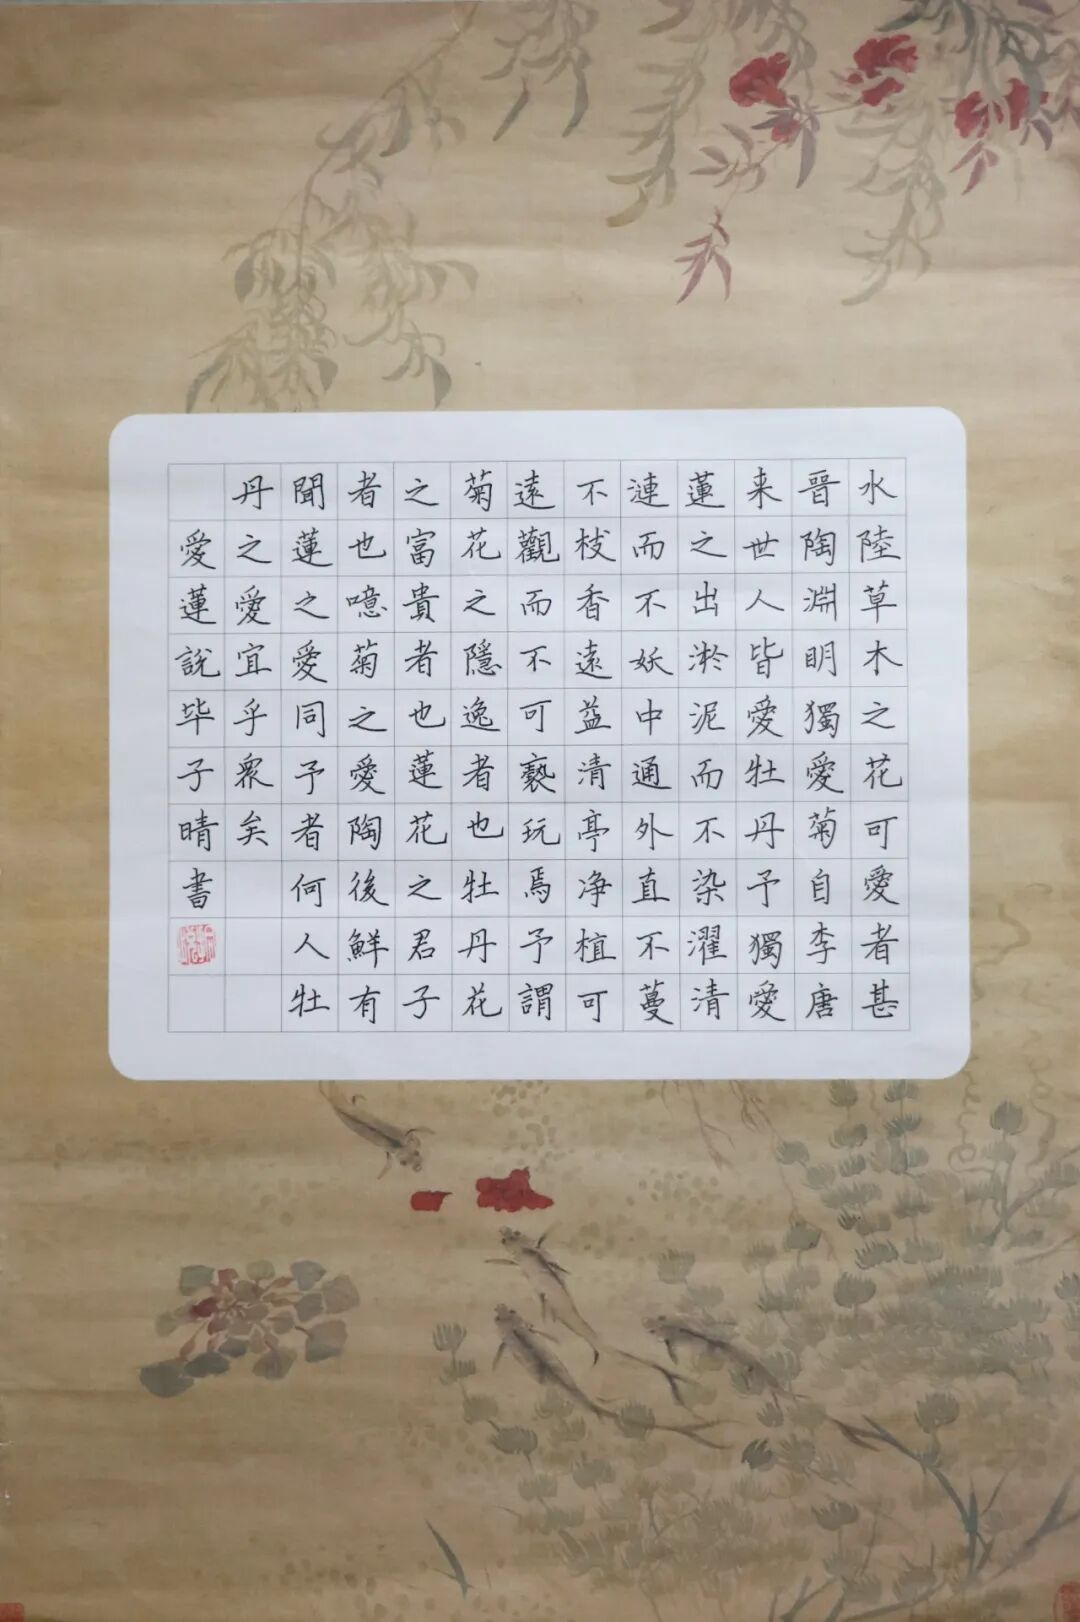 水陸草木之花可愛者甚
晉陶淵明獨愛菊自李唐
来世人皆愛牡丹予獨愛
蓮之出淤泥而不染濯清
漣而不妖中通外直不蔓
不枝香遠益清亭净植可
遠觀而不可褻玩焉予謂
菊花之隱逸者也牡丹花
之富貴者也蓮花之君子
者也噫菊之愛陶後鮮有
聞蓮之愛同予者何人牡
丹之愛宜乎衆矣
愛蓮說毕子晴書